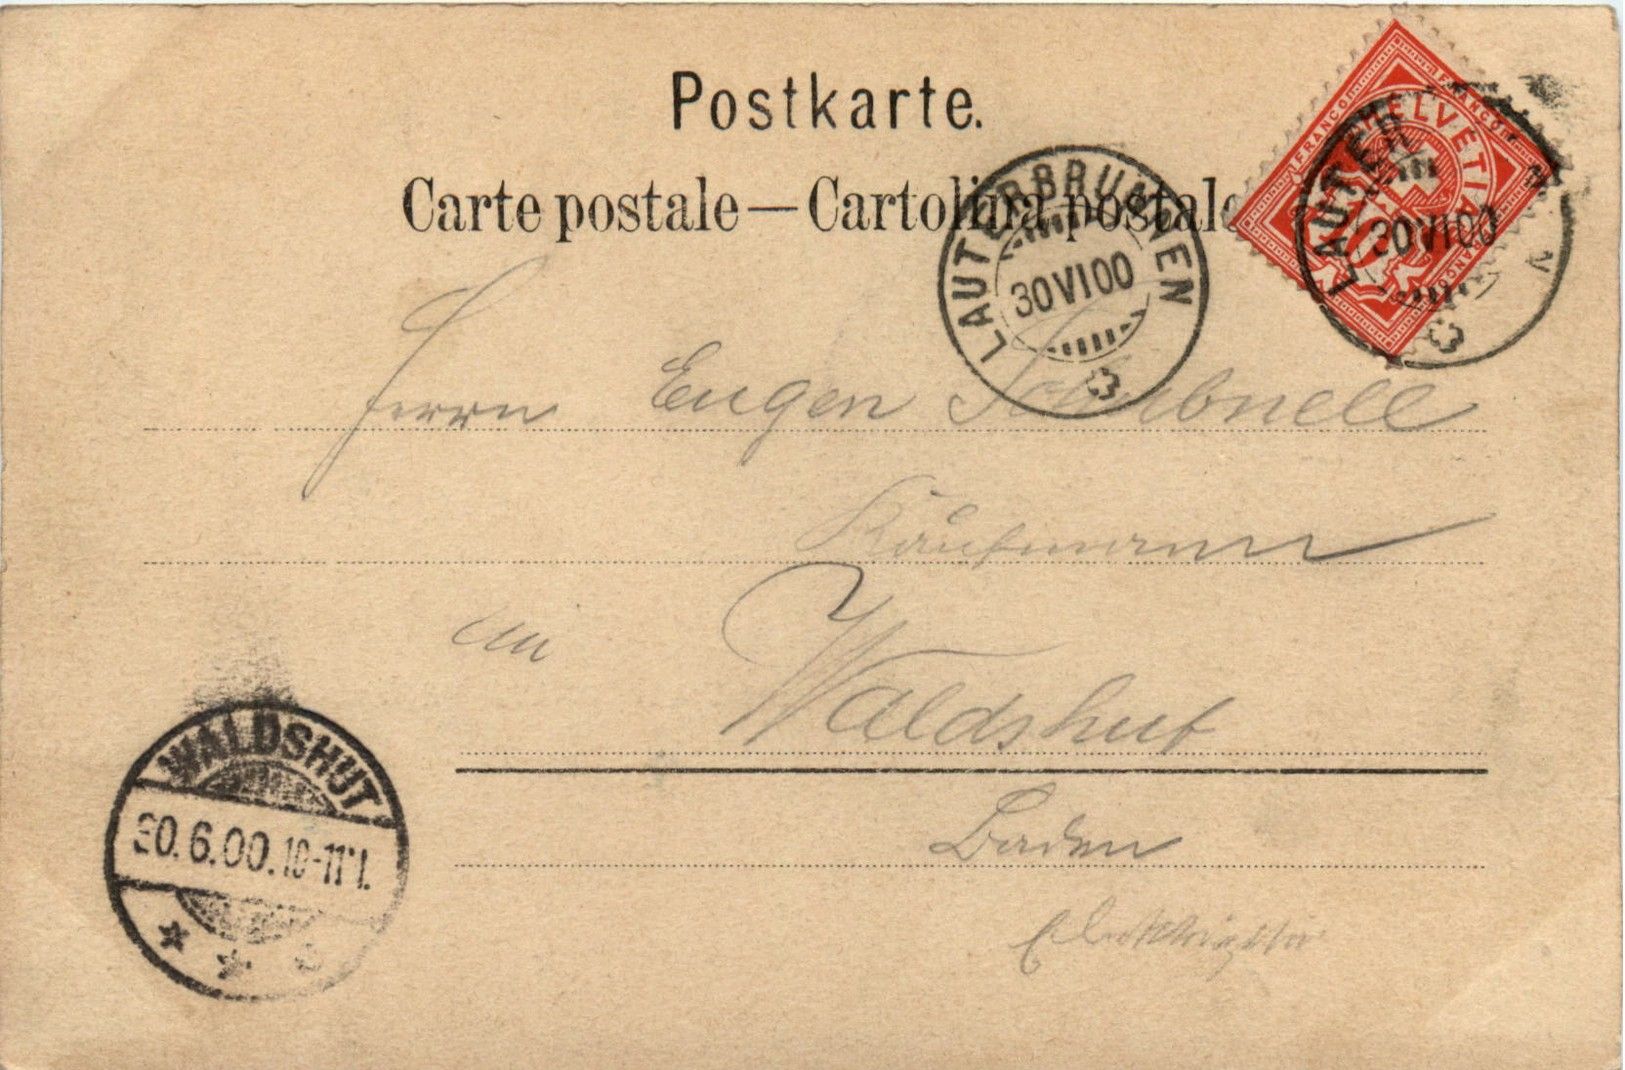 Postkarte.
Carte postale — Cartolina postale
FRANCO HELVETIA FRANCO
10
FRANCO
LAUTERBRUNNEN
30 VI 00
LAUTER
30 VI 00
Herrn Eugen
Kaufmann
in Waldshut
Baden
WALDSHUT
30.6.00.10-11